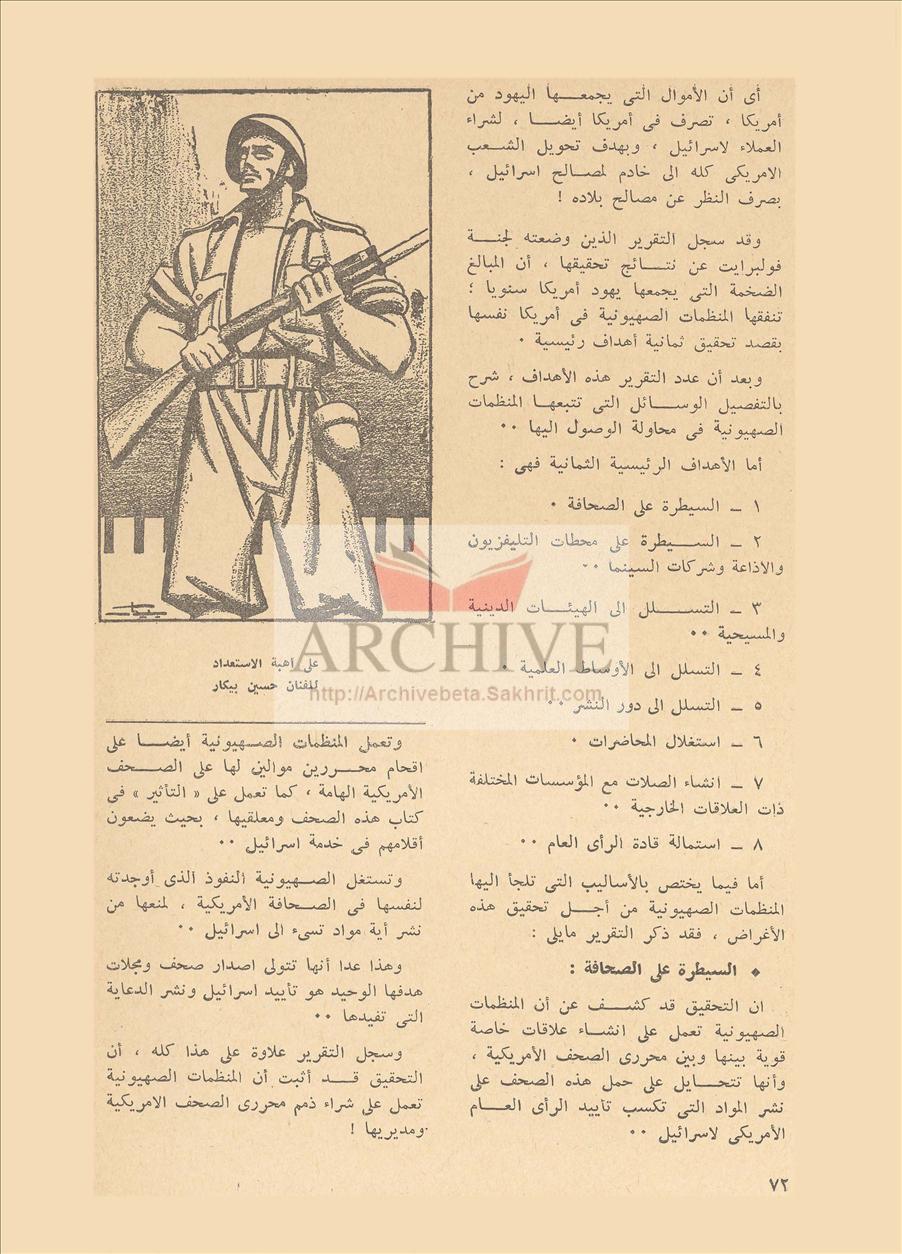 أى أن الأموال التى يجمعها اليهود من
أمريكا ، تصرف فى أمريكا أيضا ، لشراء
العملاء لاسرائيل ، وبهدف تحويل الشعب
الامريكى كله الى خادم لمصالح اسرائيل ،
بصرف النظر عن مصالح بلاده !
وقد سجل التقرير الذين وضعته لجنة
فولبرايت عن نتائج تحقيقها ، أن المبالغ
الضخمة التى يجمعها يهود أمريكا سنويا ؛
تنفقها المنظمات الصهيونية فى أمريكا نفسها
بقصد تحقيق ثمانية أهداف رئيسية ٠
وبعد أن عدد التقرير هذه الأهداف ، شرح
بالتفصيل الوسائل التى تتبعها المنظمات
الصهيونية فى محاولة الوصول اليها ٠٠
أما الأهداف الرئيسية الثمانية فهى :
١ ـ السيطرة على الصحافة ٠
٢ ـ السيطرة على محطات التليفزيون
والاذاعة وشركات السينما ٠٠
٣ ـ التسلل الى الهيئات الدينية
والمسيحية ٠٠
٤ ـ التسلل الى الأوساط العلمية ٠
٥ ـ التسلل الى دور النشر ٠٠
٦ ـ استغلال المحاضرات ٠
٧ ـ انشاء الصلات مع المؤسسات المختلفة
ذات العلاقات الخارجية ٠٠
٨ ـ استمالة قادة الرأى العام ٠٠
أما فيما يختص بالأساليب التى تلجأ اليها
المنظمات الصهيونية من أجل تحقيق هذه
الأغراض ، فقد ذكر التقرير مايلى :
♦ السيطرة على الصحافة :
ان التحقيق قد كشف عن أن المنظمات
الصهيونية تعمل على انشاء علاقات خاصة
قوية بينها وبين محررى الصحف الأمريكية ،
وأنها تتحايل على حمل هذه الصحف على
نشر المواد التى تكسب تأييد الرأى العام
الأمريكى لاسرائيل ٠٠
بيكار
على أهبة الاستعداد
للفنان حسين بيكار
وتعمل المنظمات الصهيونية أيضا على
اقحام محررين موالين لها على الصحف
الأمريكية الهامة ، كما تعمل على « التأثير » فى
كتاب هذه الصحف ومعلقيها ، بحيث يضعون
أقلامهم فى خدمة اسرائيل ٠٠
وتستغل الصهيونية النفوذ الذى أوجدته
لنفسها فى الصحافة الأمريكية ، لمنعها من
نشر أية مواد تسىء الى اسرائيل ٠٠
وهذا عدا أنها تتولى اصدار صحف ومجلات
هدفها الوحيد هو تأييد اسرائيل ونشر الدعاية
التى تفيدها ٠٠
وسجل التقرير علاوة على هذا كله ، أن
التحقيق قد أثبت أن المنظمات الصهيونية
تعمل على شراء ذمم محررى الصحف الامريكية
ومديريها !
٧٢
ARCHIVE
http://Archivebeta.Sakhrit.com